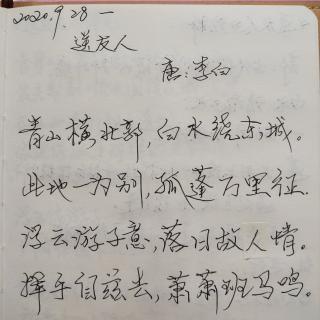 2020.9.28 一
送友人
唐:李白
青山横北郭,白水绕东城。
此地一为别,孤蓬万里征.
浮云游子意,落日故人情。
挥手自兹去,萧萧班马鸣。